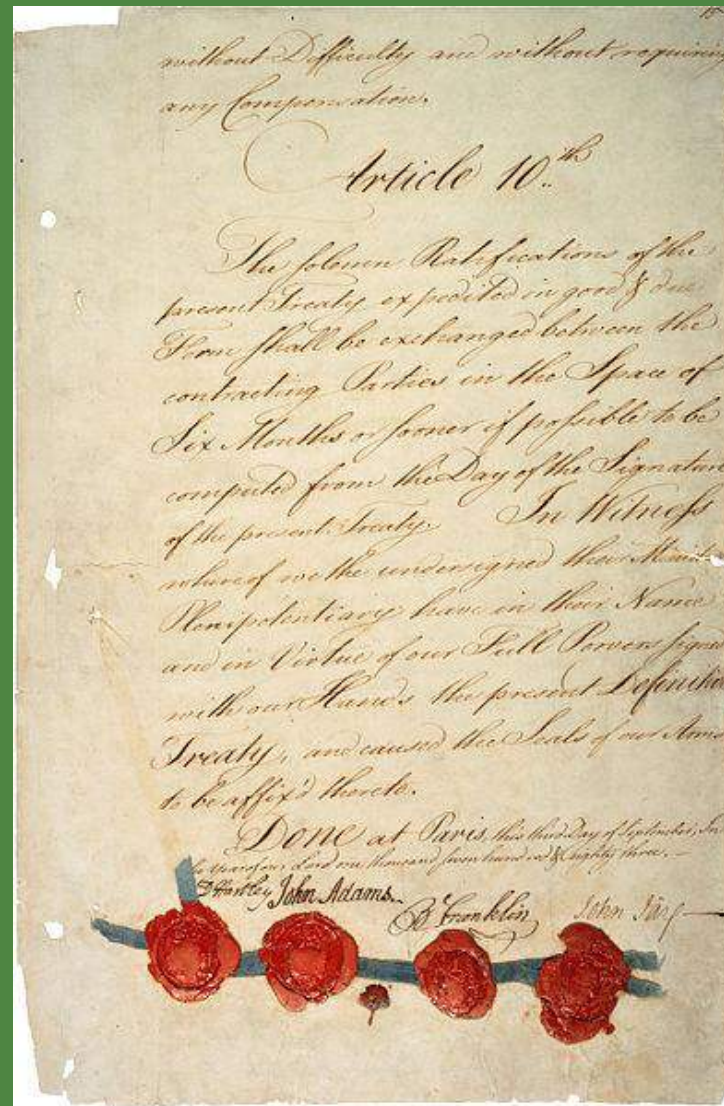 without Difficulty and without requiring
any Compensation.
Article 10.th
The solemn Ratifications of the
present Treaty expedited in good & due
Form shall be exchanged between the
contracting Parties in the Space of
Six Months or sooner if possible to be
computed from the Day of the Signature
of the present Treaty. In Witness
whereof we the undersigned their
Plenipotentiary have in their Name
and in Virtue of our Full Powers
with our Hands the present
Treaty, and caused the Seals of our Arms
to be affix'd thereto.
DONE at Paris, this third Day of September, In
the Year of our Lord one thousand seven hundred & eighty three.
D Hartley John Adams. B Franklin John Jay